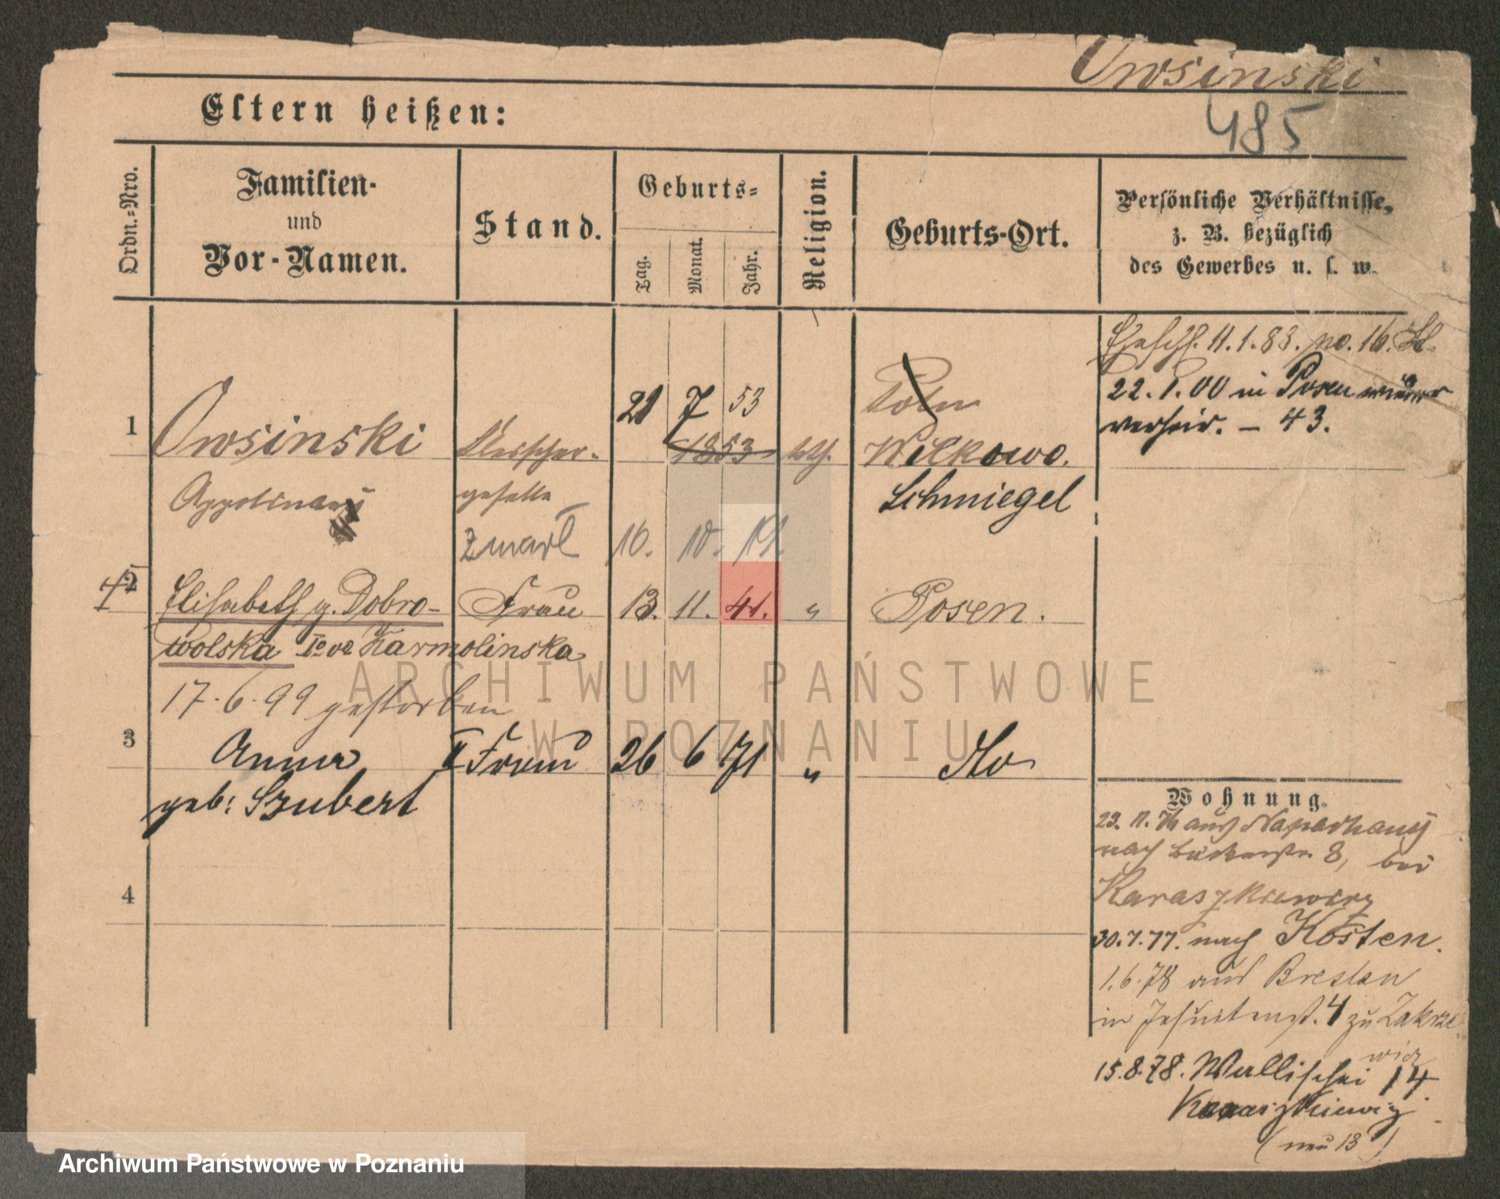 Owsinski
485
Eltern heißen:
Ordn.=Nro.
Familien-
und
Vor-Namen.
Stand.
Geburts=
Tag.
Monat.
Jahr.
Religion.
Geburts-Ort.
Persönliche Verhältnisse,
z. B. bezüglich
des Gewerbes u. s. w.
11.1.83. no. 16.
22.1.00 in Posen wieder
verheir. — 43.
1
Owsinski
21 7 53
1853
kth.
Poln
Wilkowo.
Appolinary
geselle
Schmiegel
zmarł
10. 10. 12
2
Elisabeth g. Dobro-
Frau
13. 11. 41.
"
Posen.
wolska Io vo Karmolinska
17.6.99 gestorben
3
Anna
II Frau
26 6 71
"
geb: Szubert
4
Wohnung.
nach Bäckerstr. 8, bei
Karaszkiewicz
30.7.77. nach Kosten.
1.6.78 aus Breslau
in Jesuitenst. 4 zu Zakrze
wicz
15.8.78. Wallischei 14
Karaszkiewicz
(neu 13)
ARCHIWUM PAŃSTWOWE
W POZNANIU
Archiwum Państwowe w Poznaniu